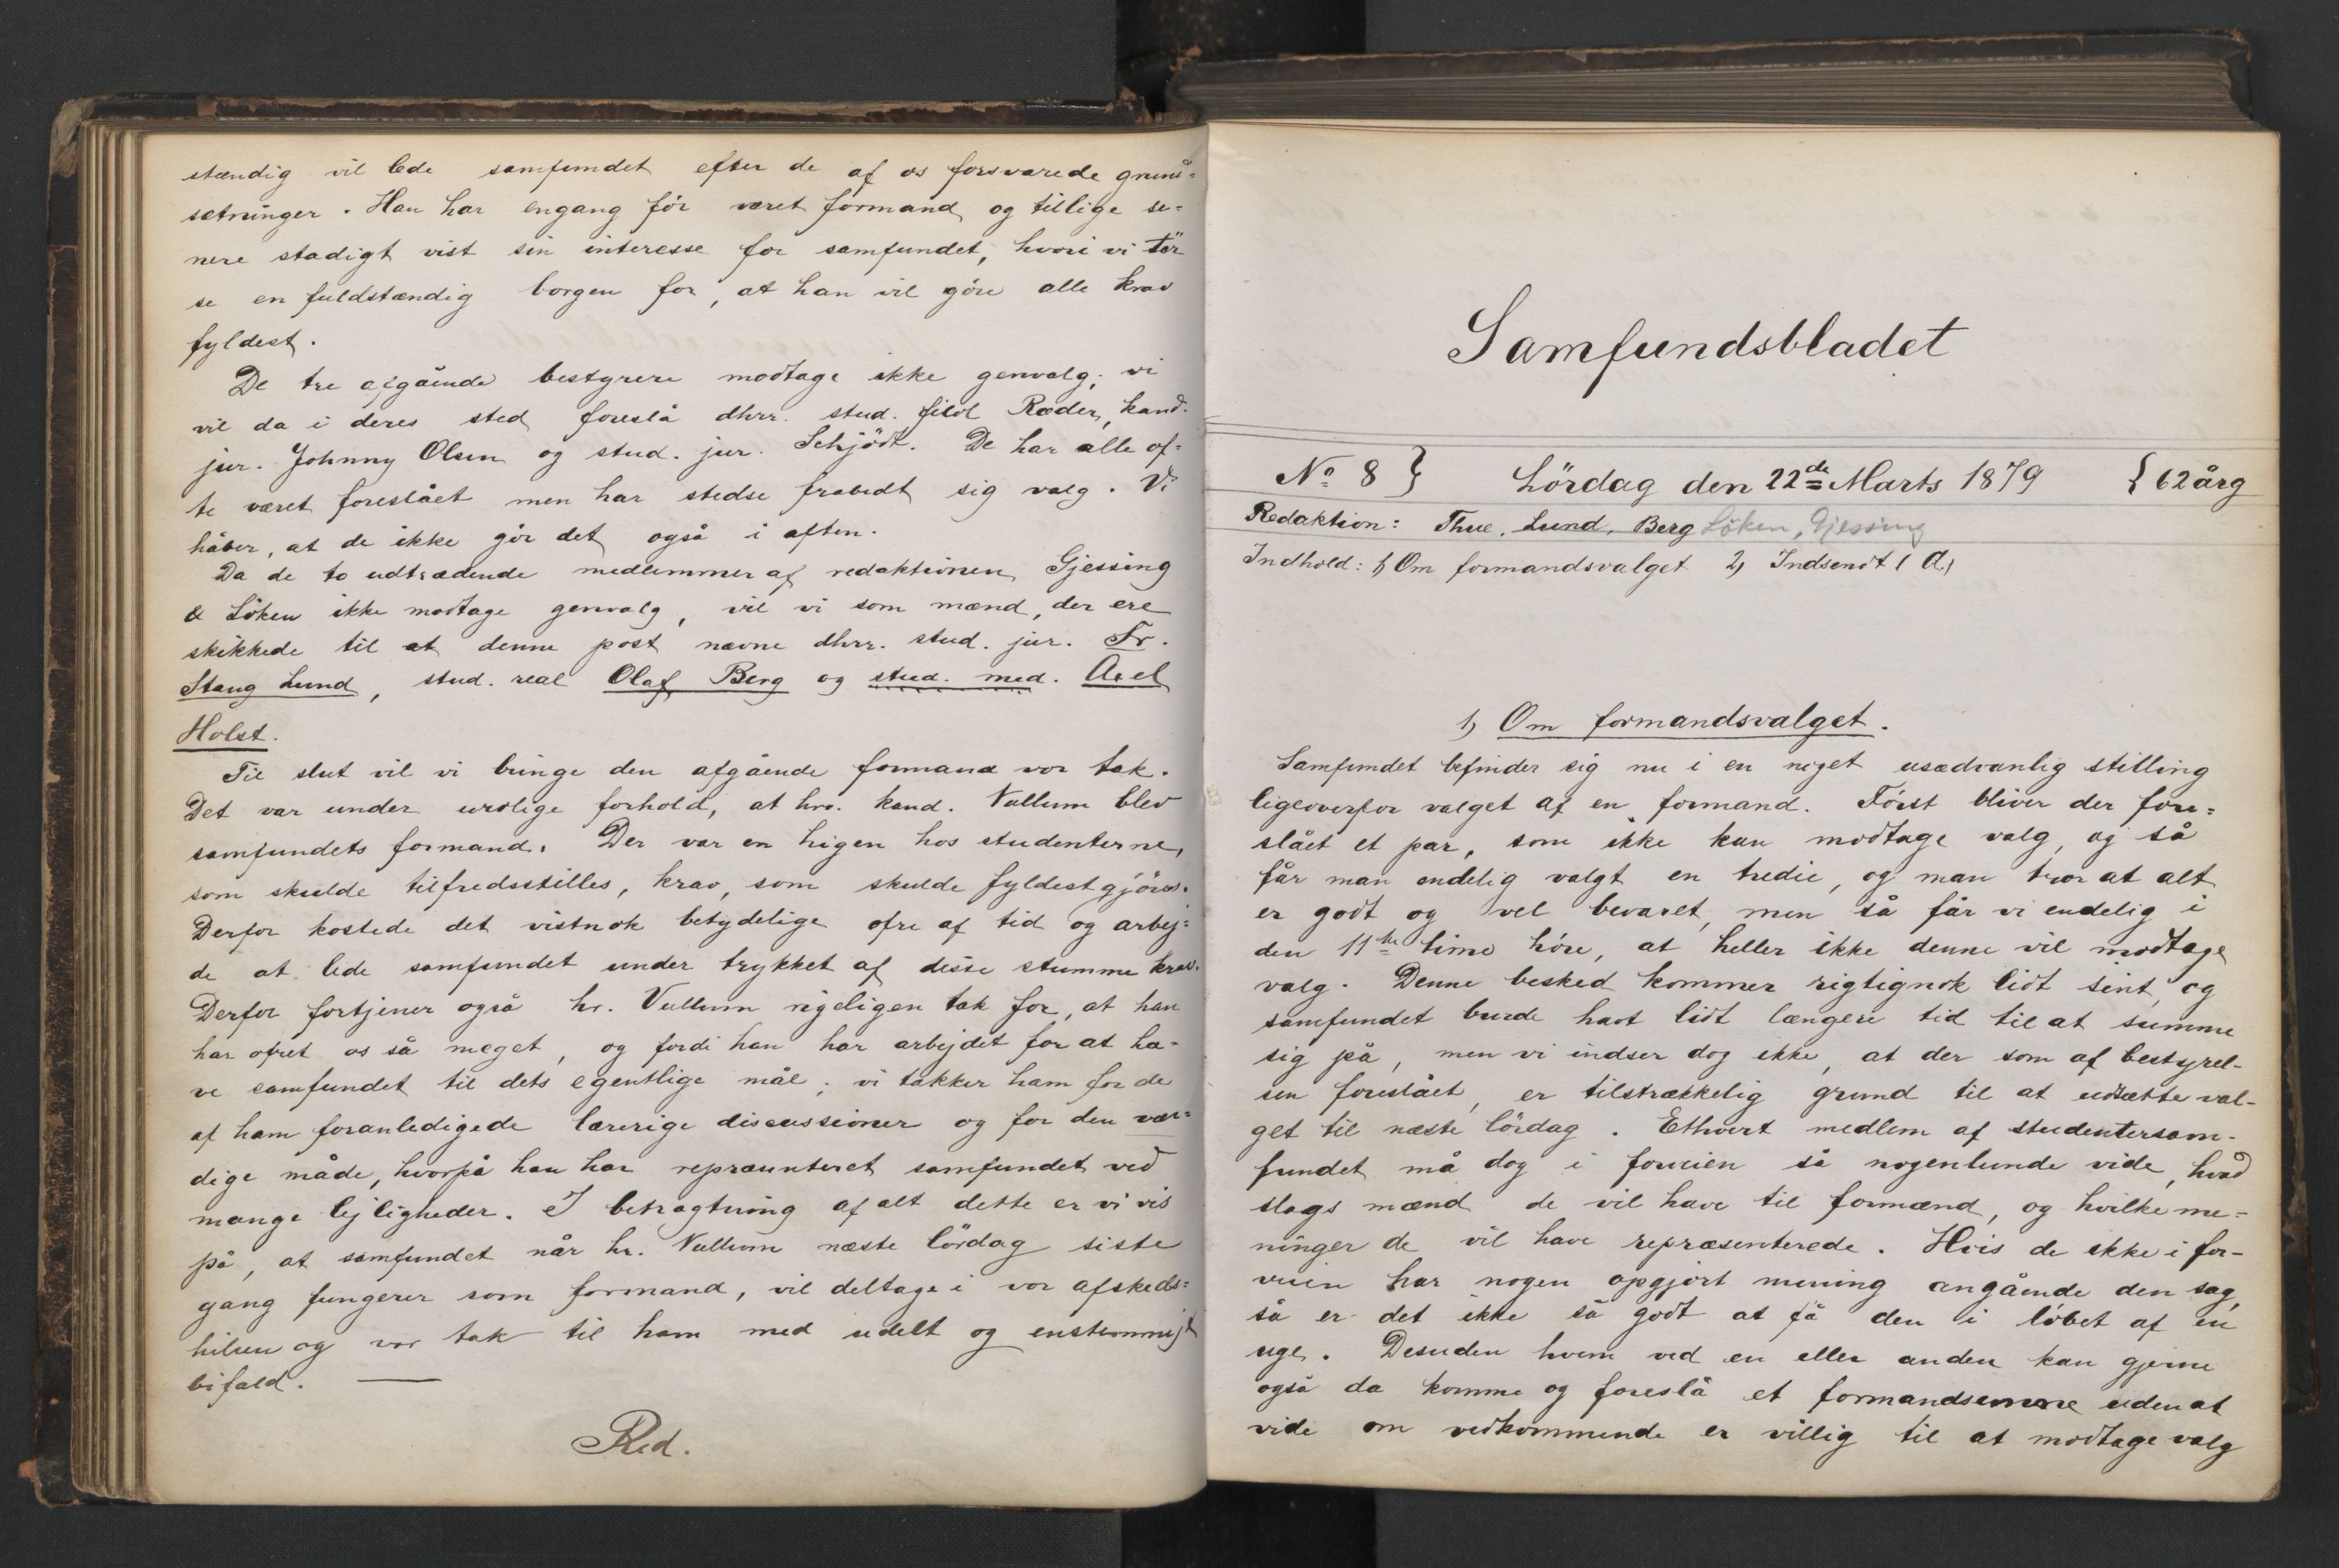 stændig vil lede samfundet efter de af os forsvarede grund=
sætninger. Han har engang för været formand og tillige se=
nere stadigt vist sin interesse for samfundet, hvori vi tör
se en fuldstændig borgen for, at han vil göre alle krav
fyldest.
De tre afgående bestyrere modtage ikke genvalg; vi
vil da i deres sted foreslå dhrr. stud. filol Ræder, kand.
jur. Johnny Olsen og stud. jur. Schjödt. De har alle of=
te været foreslået men har stedse frabedt sig valg. Vi
håber, at de ikke gör det også i aften.
Da de to udtrædende medlemmer af redaktionen Gjessing
& Löken ikke modtage genvalg, vil vi som mænd, der ere
skikkede til at denne post nævne dhrr. stud. jur. Fr.
Stang Lund, stud. real Olaf Berg og stud. med. Axel
Holst.
Til slut vil vi bringe den afgående formand vor tak.
Det var under urolige forhold, at hrr. kand. Vullum blev
samfundets formand. Der var en higen hos studenterne,
som skulde tilfredsstilles, krav, som skulde fyldestgjöres.
Derfor kostede det vistnok betydelige ofre af tid og arbej=
de at lede samfundet under trykket af disse stumme krav.
Derfor fortjener også hr. Vullum rigeligen tak for, at han
har ofret os så meget, og fordi han har arbejdet for at ha-
ve samfundet til dets egentlige mål; vi takker ham for de
af ham foranledigede lærerige discussioner og for den vær=
dige måde, hvorpå han har repræsenteret samfundet ved
mange lejligheder. I betragtning af alt dette er vi vis
på, at samfundet når hr. Vullum næste lördag siste
gang fungerer som formand, vil deltage i vor afskeds=
hilsen og vor tak til ham med udelt og enstemmigt
bifald. —
Red.
Samfundsbladet
No 8 } Lördag den 22de Marts 1879 { 62 årg
Redaktion: Thue, Lund, Berg Löken, Gjessing
Indhold: 1) Om formandsvalget 2) Indsendt (A.)
1) Om formandsvalget.
Samfundet befinder sig nu i en noget usædvanlig stilling
ligeoverfor valget af en formand. Först bliver der fore=
slået et par, som ikke kan modtage valg, og så
får man endelig valgt en tredie, og man tror at alt
er godt og vel bevaret, men så får vi endelig i
den 11te time höre, at heller ikke denne vil modtage
valg. Denne besked kommer rigtignok lidt sent, og
samfundet burde havt lidt længere tid til at summe
sig på, men vi indser dog ikke, at der som af bestyrel-
sen foreslået, er tilstrækkelig grund til at udsætte val-
get til næste lördag. Ethvert medlem af studentersam-
fundet må dog i forveien så nogenlunde vide, hvad
slags mænd de vil have til formænd, og hvilke me=
ninger de vil have repræsenterede. Hvis de ikke i for-
veien har nogen opgjört mening angående den sag,
så er det ikke så godt at få den i löbet af en
uge. Desuden hvem ved en eller anden kan gjerne
også da komme og foreslå et formandsemne uden at
vide om vedkommende er villig til at modtage valg